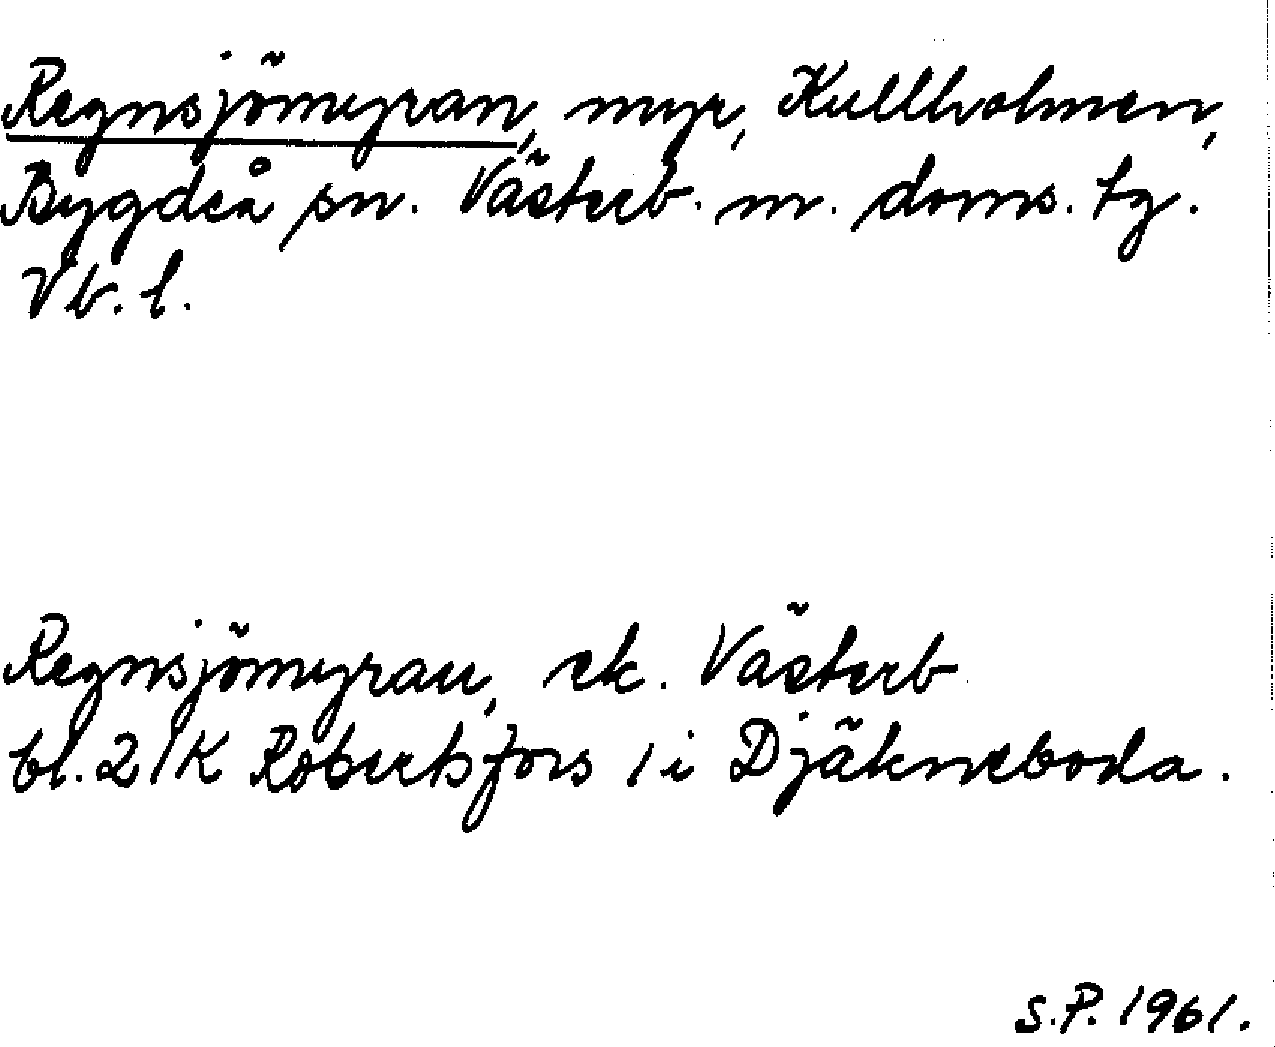 Regnsjömyran, myr, Kullholmen,
Bygdeå sn. Västerb. m. doms. tg.
Vb. l.
Regnsjömyran, ek. Västerb
bl. 21K Robertsfors / i Djäkneboda.
S.P. 1961.